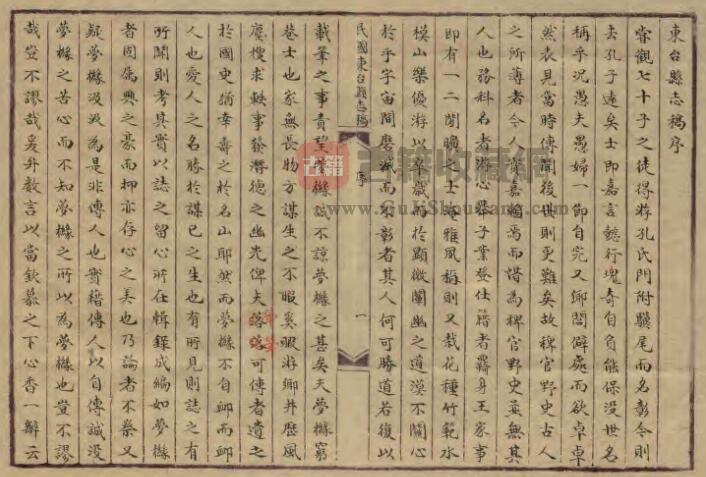 東台縣志稿序
常觀七十子之徒得游孔氏門附驥尾而名彰今則
去孔子遠矣士即嘉言懿行瑰奇自負能保没世名
稱乎況愚夫愚婦一節自完又鄉閭僻處而欲卓卓
然表見當時傳聞後世則更難矣故稗官野史古人
之所薄者今人賞嘉稱焉而謂為稗官野史並無其
人也務科名者游心舉子業登仕籍者羈身王家事
即有一二閒曠之士 雅風稱則又栽花種竹範水
模山樂優游以卒歲而於顯微闡幽之道漠不關心
於乎宇宙間磨滅而不彰者其人何可勝道若復以
民國東台縣志稿
序
一
載筆之事責望夢 誠不諒夢 之甚矣夫夢 窮
巷士也家無長物方謀生之不暇奚暇游鄉井歷風
塵搜求軼事發潛德之幽光俾夫落落可傳者遺之
於國史猶幸壽之於名山耶然而夢 不自卹而卹
人也愛人之名勝於謀己之生也有所見則誌之有
所聞則考其實以誌之留心所在輯錄成編如夢
者固屬興之豪而抑亦存心之美也乃論者不察又
疑夢 汲汲為是非傳人也實藉傳人以自傳誠没
夢 之苦心而不知夢 之所以為夢 也豈不謬
哉豈不謬哉爰升教言以當欽慕之下心香一瓣云
古籍
古籍收藏网
www.GuJiShouCang.com